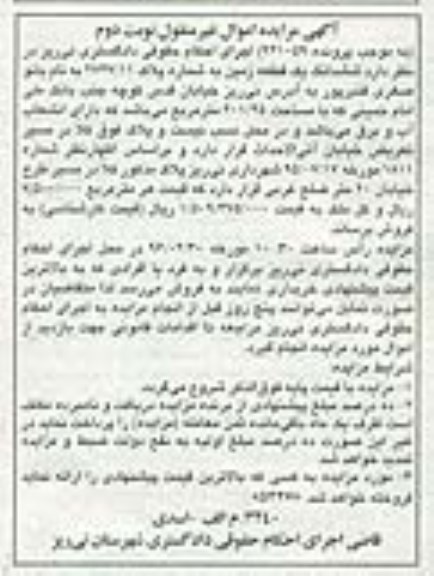 آگهی مزایده اموال غیرمنقول نوبت دوم
به موجب پرونده اجرای احکام حقوقی دادگستری نی‌ریز در
نظر دارد ششدانگ یک قطعه زمین به شماره پلاک به نام بانو
عسکری به آدرس نی‌ریز خیابان قدس کوچه جنب بانک ملی
امام خمینی که با مساحت ۲۰۱/۲۵ مترمربع می‌باشد که دارای انشعاب
آب و برق می‌باشد و در محل نصب نیست و پلاک فوق کلا در مسیر
تعریض خیابان قرار دارد و براساس اظهارنظر شماره
مورخه شهرداری نی‌ریز پلاک مذکور کلا در مسیر طرح
خیابان ۲۰ متر ضلع غربی قرار دارد که قیمت هر مترمربع
ریال و کل ملک به قیمت ریال (قیمت کارشناسی) به
فروش برساند.
مزایده رأس ساعت ۱۰:۳۰ مورخه در محل اجرای احکام
حقوقی دادگستری نی‌ریز برگزار و به فرد یا افرادی که به بالاترین
قیمت پیشنهادی خریداری نمایند به فروش می‌رسد لذا متقاضیان در
صورت تمایل می‌توانند پنج روز قبل از انجام مزایده به اجرای احکام
حقوقی دادگستری نی‌ریز مراجعه تا اقدامات قانونی جهت بازدید از
اموال مورد مزایده انجام گیرد.
شرایط مزایده:
۱- مزایده با قیمت پایه فوق‌الذکر شروع می‌گردد.
۲- ده درصد مبلغ پیشنهادی از برنده مزایده دریافت و نامبرده مکلف
است ظرف یک ماه باقی‌مانده ثمن معامله (مزایده) را پرداخت نماید در
غیر این صورت ده درصد مبلغ اولیه به نفع دولت ضبط و مزایده
تجدید خواهد شد.
۳- مورد مزایده به کسی که بالاترین قیمت پیشنهادی را ارائه نماید
فروخته خواهد شد.
۳۲۴۰/م الف - اسدی
قاضی اجرای احکام حقوقی دادگستری شهرستان نی‌ریز